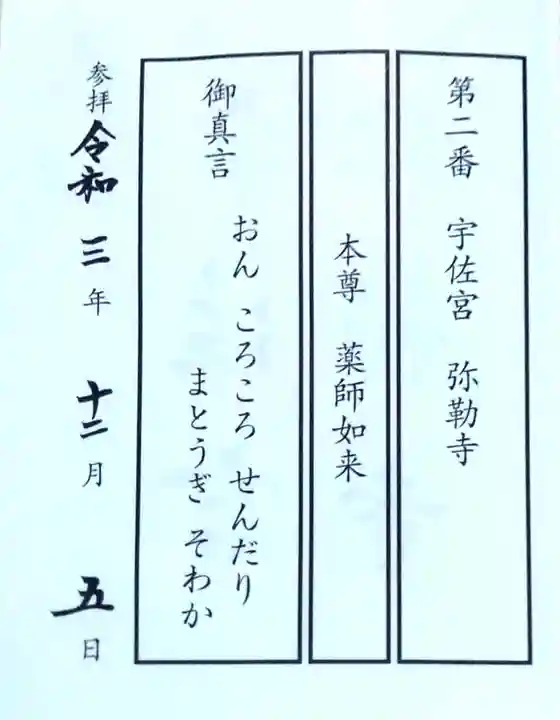 第二番 宇佐宮 弥勒寺
本尊 薬師如来
御真言
おん ころころ せんだり
まとうぎ そわか
参拝 令和 三 年 十二 月 五 日